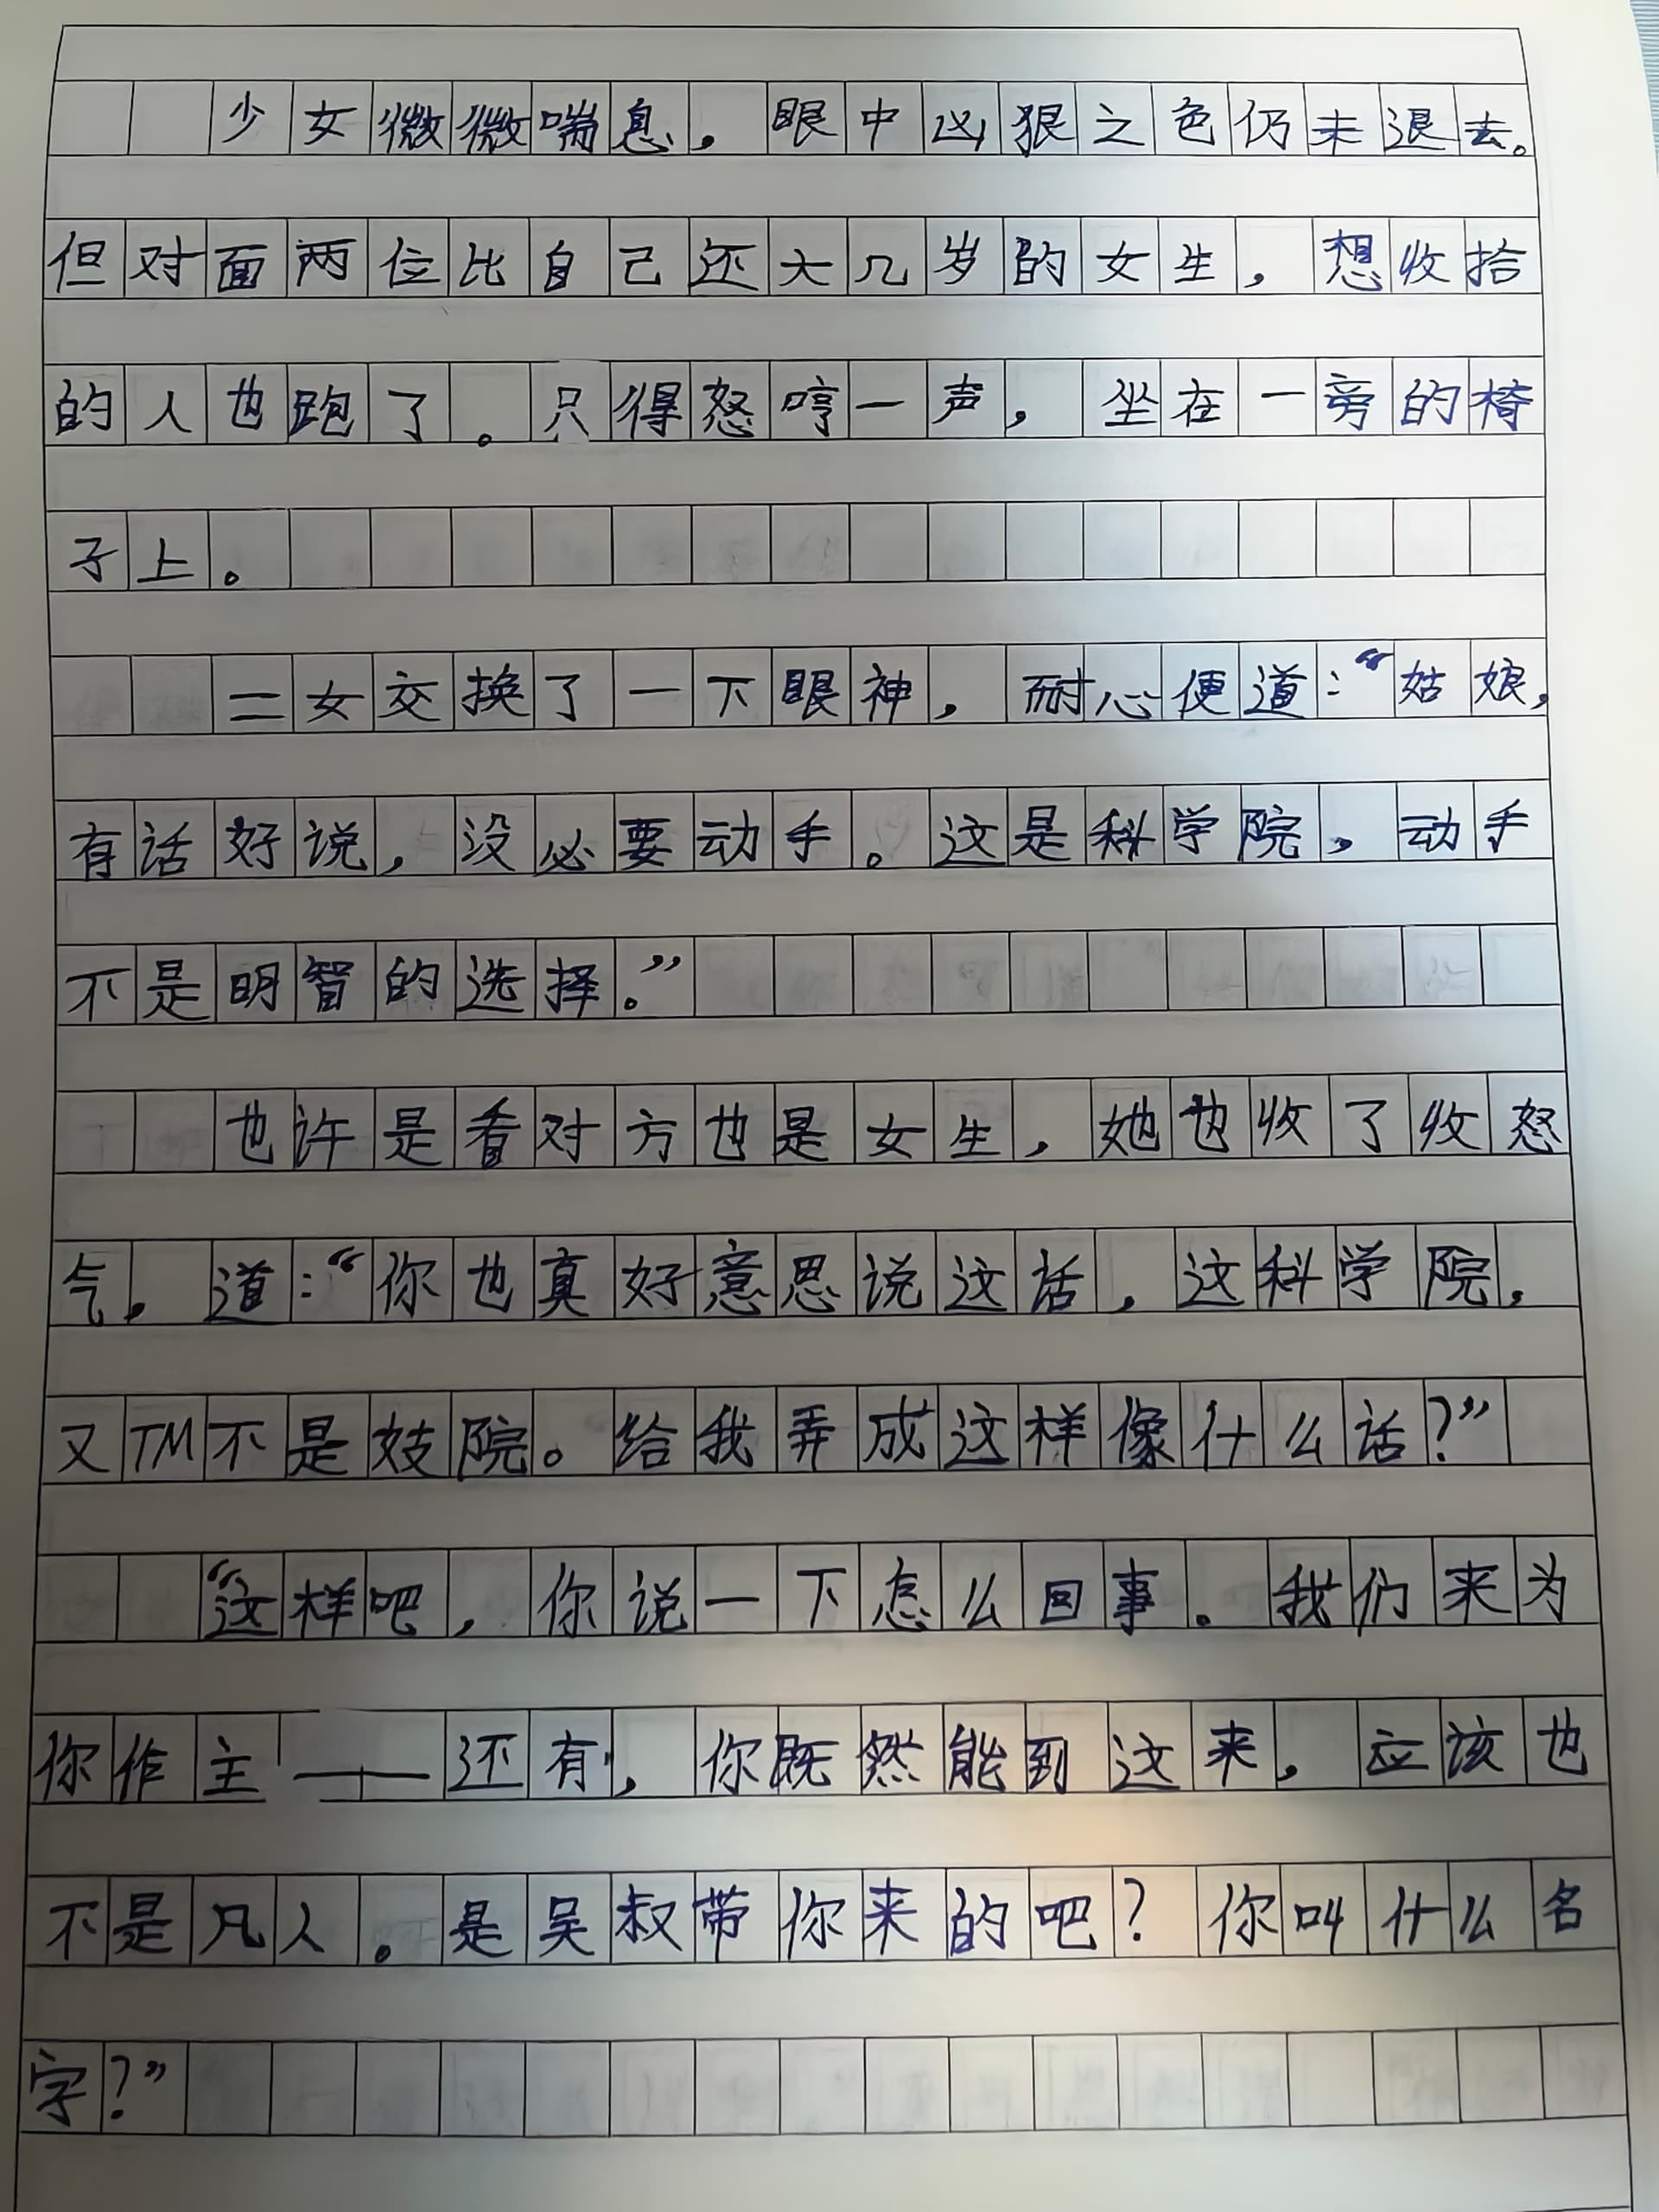 少女微微喘息，眼中凶狠之色仍未退去。
但对面两位比自己还大几岁的女生，想收拾
的人也跑了。只得怒哼一声，坐在一旁的椅
子上。
二女交换了一下眼神，耐心便道：“姑娘，
有话好说，没必要动手。这是科学院，动手
不是明智的选择。”
也许是看对方也是女生，她也收了收怒
气，道：“你也真好意思说这话，这科学院，
又TM不是妓院。给我弄成这样像什么话？”
“这样吧，你说一下怎么回事。我们来为
你作主——还有，你既然能到这来，应该也
不是凡人。是吴叔带你来的吧？你叫什么名
字？”